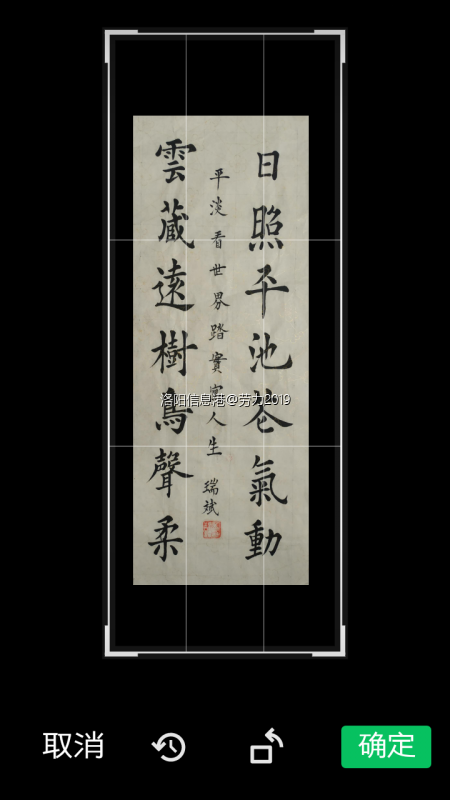 日照平池花氣動
平淡看世界踏實寫人生
瑞斌
雲藏遠樹鳥聲柔
洛阳信息港@劳力2019
取消
确定